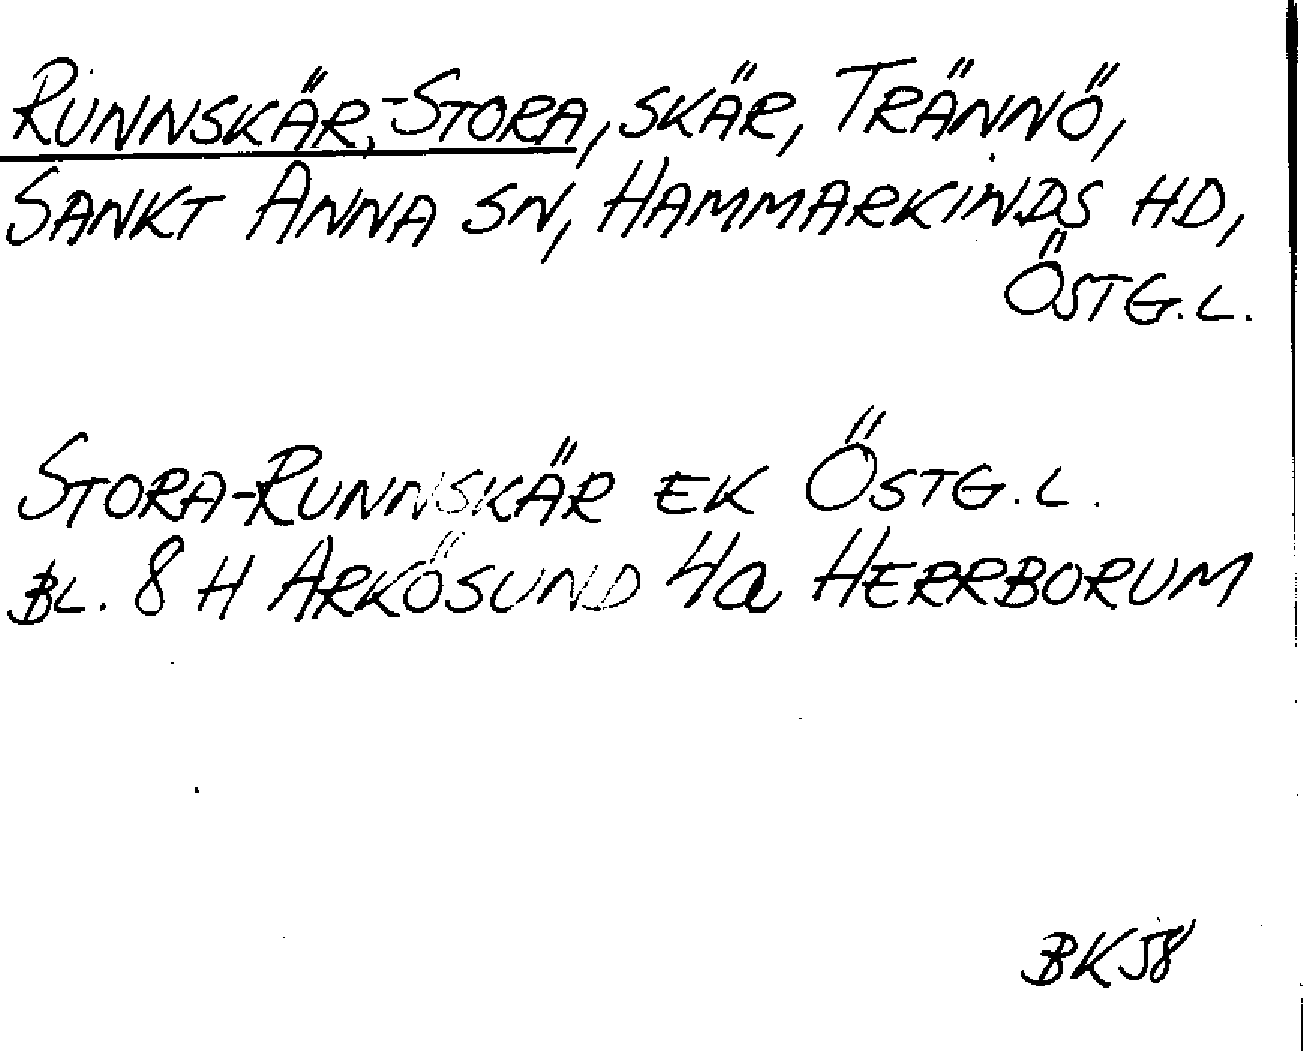 RUNNSKÄR,-STORA, SKÄR, TRÄNNÖ,
SANKT ANNA SN, HAMMARKINDS HD,
ÖSTG.L.
STORA-RUNNSKÄR EK ÖSTG.L.
BL. 8 H ARKÖSUND 4a HERRBORUM
BK58